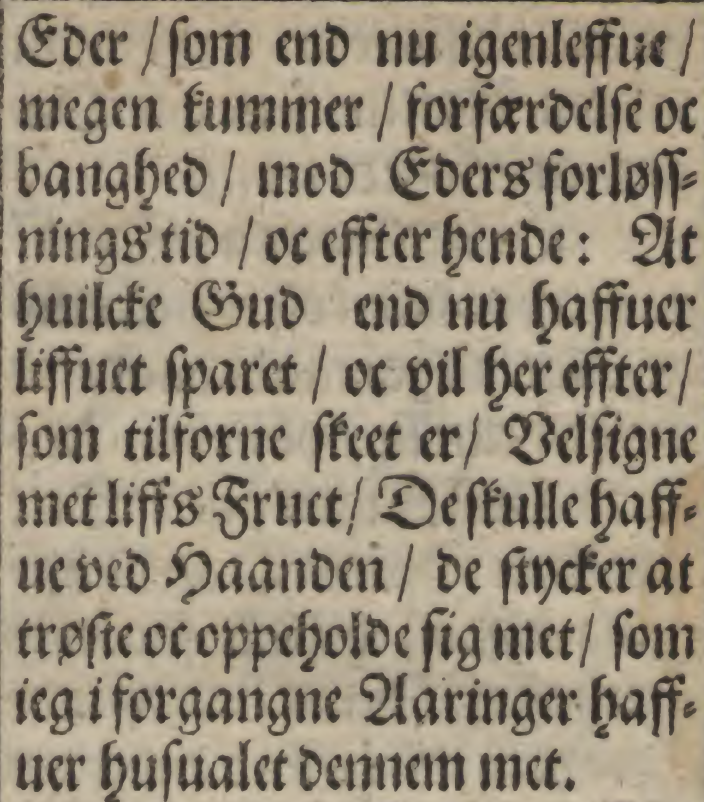 Eder / ſom end nu igenleffue /
megen kummer / forfærdelſe oc
banghed / mod Eders forløſſ⸗
nings tid / oc effter hende: At
huilcke Gud end nu haffuer
liffuet ſparet / oc vil her effter /
ſom tilforne ſkeet er / Velſigne
met liffs Fruct / De ſkulle haff⸗
ue ved Haanden / de ſtycker at
trøſte oc oppeholde ſig met / ſom
ieg i forgangne Aaringer haff⸗
uer huſualet dennem met.